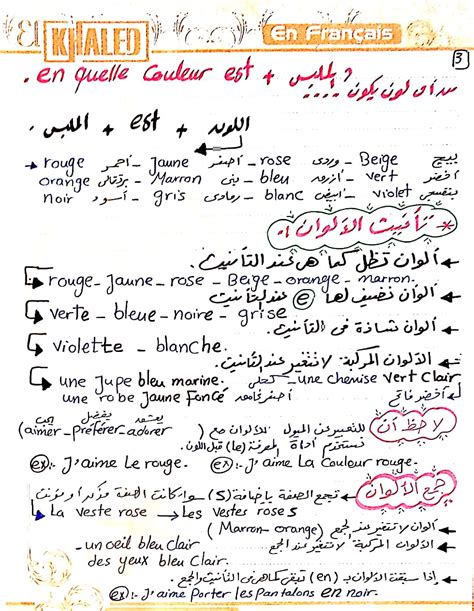 El KHALED En Français
3
. en quelle couleur est + الملبس ؟ من أى لون يكون
اللون + est + الملبس .
rouge أحمر - Jaune أصفر - rose وردى - Beige بيج
orange برتقالى - Marron بنى - bleu أزرق - vert أخضر
noir أسود - gris رمادى - blanc أبيض - violet بنفسجى
* تأنيث الألوان :
ألوان تظل كما هى عند التأنيث.
rouge - Jaune - rose - Beige - orange - marron.
ألوان نضيف لها e عند التأنيث
verte - bleue - noire - grise
ألوان شاذة فى التأنيث
violette - blanche.
الألوان المركبة لا تتغير عند التأنيث
une Jupe bleu marine. كحلى - une chemise vert Clair
une robe Jaune Foncé أصفر غامق أخضر فاتح
لاحظ أن
للتعبير عن الميول للألوان مع ( aimer يحب - préférer يفضل - adorer )
نستخدم أداة المعرفة (le) قبل اللون.
ex: J'aime Le rouge. ex: J'aime La Couleur rouge.
جمع الألوان
تجمع الصفة بإضافة (s) سواء كانت الصفة مذكر أو مؤنث
La veste rose → Les vestes roses
ألوان لا تتغير عند الجمع (Marron - orange)
- un oeil bleu Clair الألوان المركبة لا تتغير عند الجمع
des yeux bleu Clair.
إذا سبقت الألوان بـ (en) تبقى كما هى فى التأنيث والجمع
ex: J'aime Porter les Pantalons en noir.